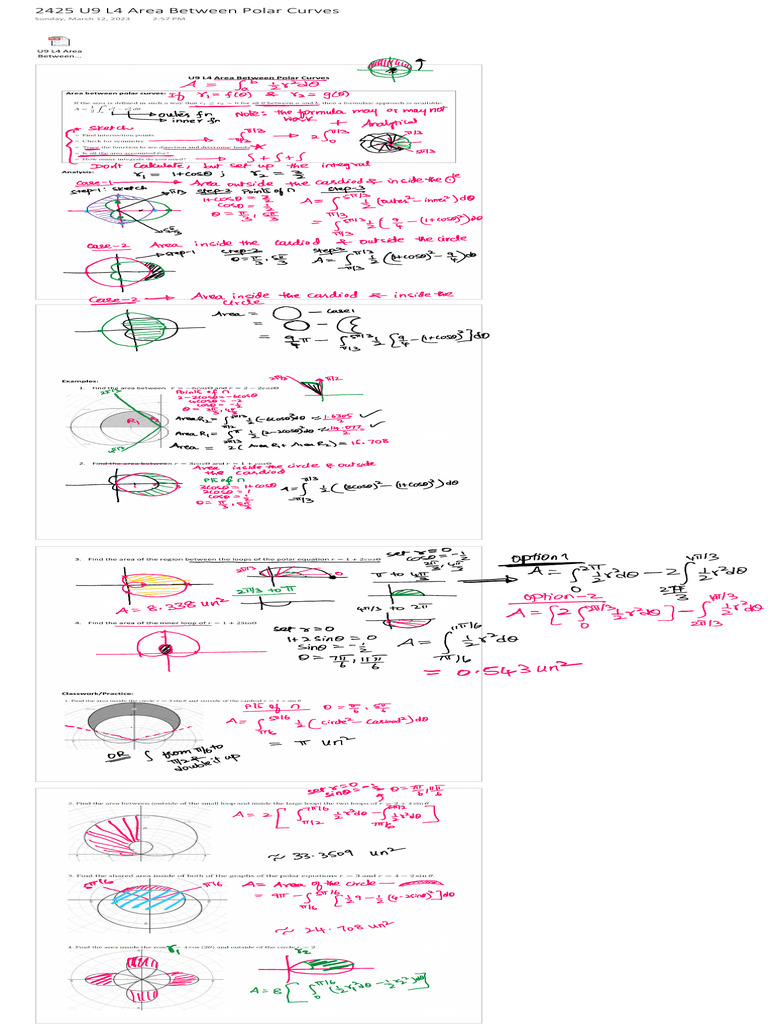 2425 U9 L4 Area Between Polar Curves
Sunday, March 12, 2023 2:57 PM
U9 L4 Area
Between...
U9 L4 Area Between Polar Curves
A = ∫ₐᵇ ½r²dθ
Area between polar curves: If r₁ = f(θ) & r₂ = g(θ)
→ outer fn
→ inner fn
Note: the formula may or may not
work + Analytical
* Sketch
Find intersection points
Check for symmetry
→ 2∫₀^π/3
π/3
5π/3
How many integrals do you need? → ∫ + ∫ + ∫
Don't Calculate, but set up the integral
Analysis: r₁ = 1+cosθ ; r₂ = 3/2
Case-1 → Area outside the cardiod & inside the
step-1: sketch
π/3
5π/3
step-2 Points of ∩
1+cosθ = 3/2
cosθ = 1/2
θ = π/3, 5π/3
step-3
A = ∫π/3^5π/3 ½(outer² - inner²)dθ
= ∫π/3^5π/3 ½(9/4 - (1+cosθ)²)dθ
Case-2 Area inside the cardiod & outside the circle
step-1
step-2
θ = π/3, 5π/3
step3
Case-2 → Area inside the cardiod & inside the
circle
Area = ◯ - case1
= ◯ -
= 9/4 π - ∫π/3^5π/3 ½[9/4 - (1+cosθ)²]dθ
Examples:
1. Find the area between r = −6cosθ and r = 2 − 2cosθ
2π/3
π/2
2π/3
R₁
Points of ∩
2-2cosθ = -6cosθ
4cosθ = -2
θ = 2π/3, 4π/3
Area R₂ = ∫ ½(-6cosθ)²dθ ≈ 1.6305 ✓
Area R₁ = ∫ ½(2-2cosθ)²dθ ≈ ✓
Area = 2(Area R₁ + Area R₂) = 16.708
2. Find the area between r = 3cosθ and r = 1 + cosθ
Area inside the circle & outside
the cardiod
Pts of ∩
3cosθ = 1+cosθ
2cosθ = 1
cosθ = 1/2
θ = π/3, 5π/3
3. Find the area of the region between the loops of the polar equation r = 1 + 2cosθ
set r=0
cosθ = -1/2
2π/3, 4π/3
2π/3
0
2π/3 to π
π to 4π/3
4π/3 to 2π
A = 8.338 un²
option 1
A = ∫₀^2π ½r²dθ - 2∫2π/3^4π/3 ½r²dθ
option-2
A = [2∫₀^2π/3 ½r²dθ] - ∫2π/3^4π/3 ½r²dθ
4. Find the area of the inner loop of r = 1 + 2sinθ
set r=0
1+2sinθ = 0
sinθ = -1/2
θ = 7π/6, 11π/6
A = ∫7π/6^11π/6 ½r²dθ
= 0.543 un²
Classwork/Practice:
1. Find the area inside the circle r = 3 sin θ and outside of the cardiod r = 1 + sin θ
Pts of ∩ θ = π/6, 5π/6
A = ∫π/6^5π/6 ½(circle² - cardiod²)dθ
= π un²
OR ∫ from π/6 to
π/2 & double it up
set r=0
sinθ = -1/2
2. Find the area between (outside of the small loop and inside the large loop) the two loops of r = 2 + 4 sin θ
≈ 33.3509 un²
3. Find the shared area inside of both of the graphs of the polar equations r = 3 and r = 4 − 2 sin θ.
5π/6
π/6
A = Area of the circle -
= 9π - ∫π/6^5π/6 [½9 - ½(4-2sinθ)²]dθ
≈ 24.708 un²
4. Find the area inside the 4cos (2θ) and outside of the circle = 2
r₁
r₂
A = 8[∫₀^π/6 (½r₁²dθ - ½r₂²)dθ]